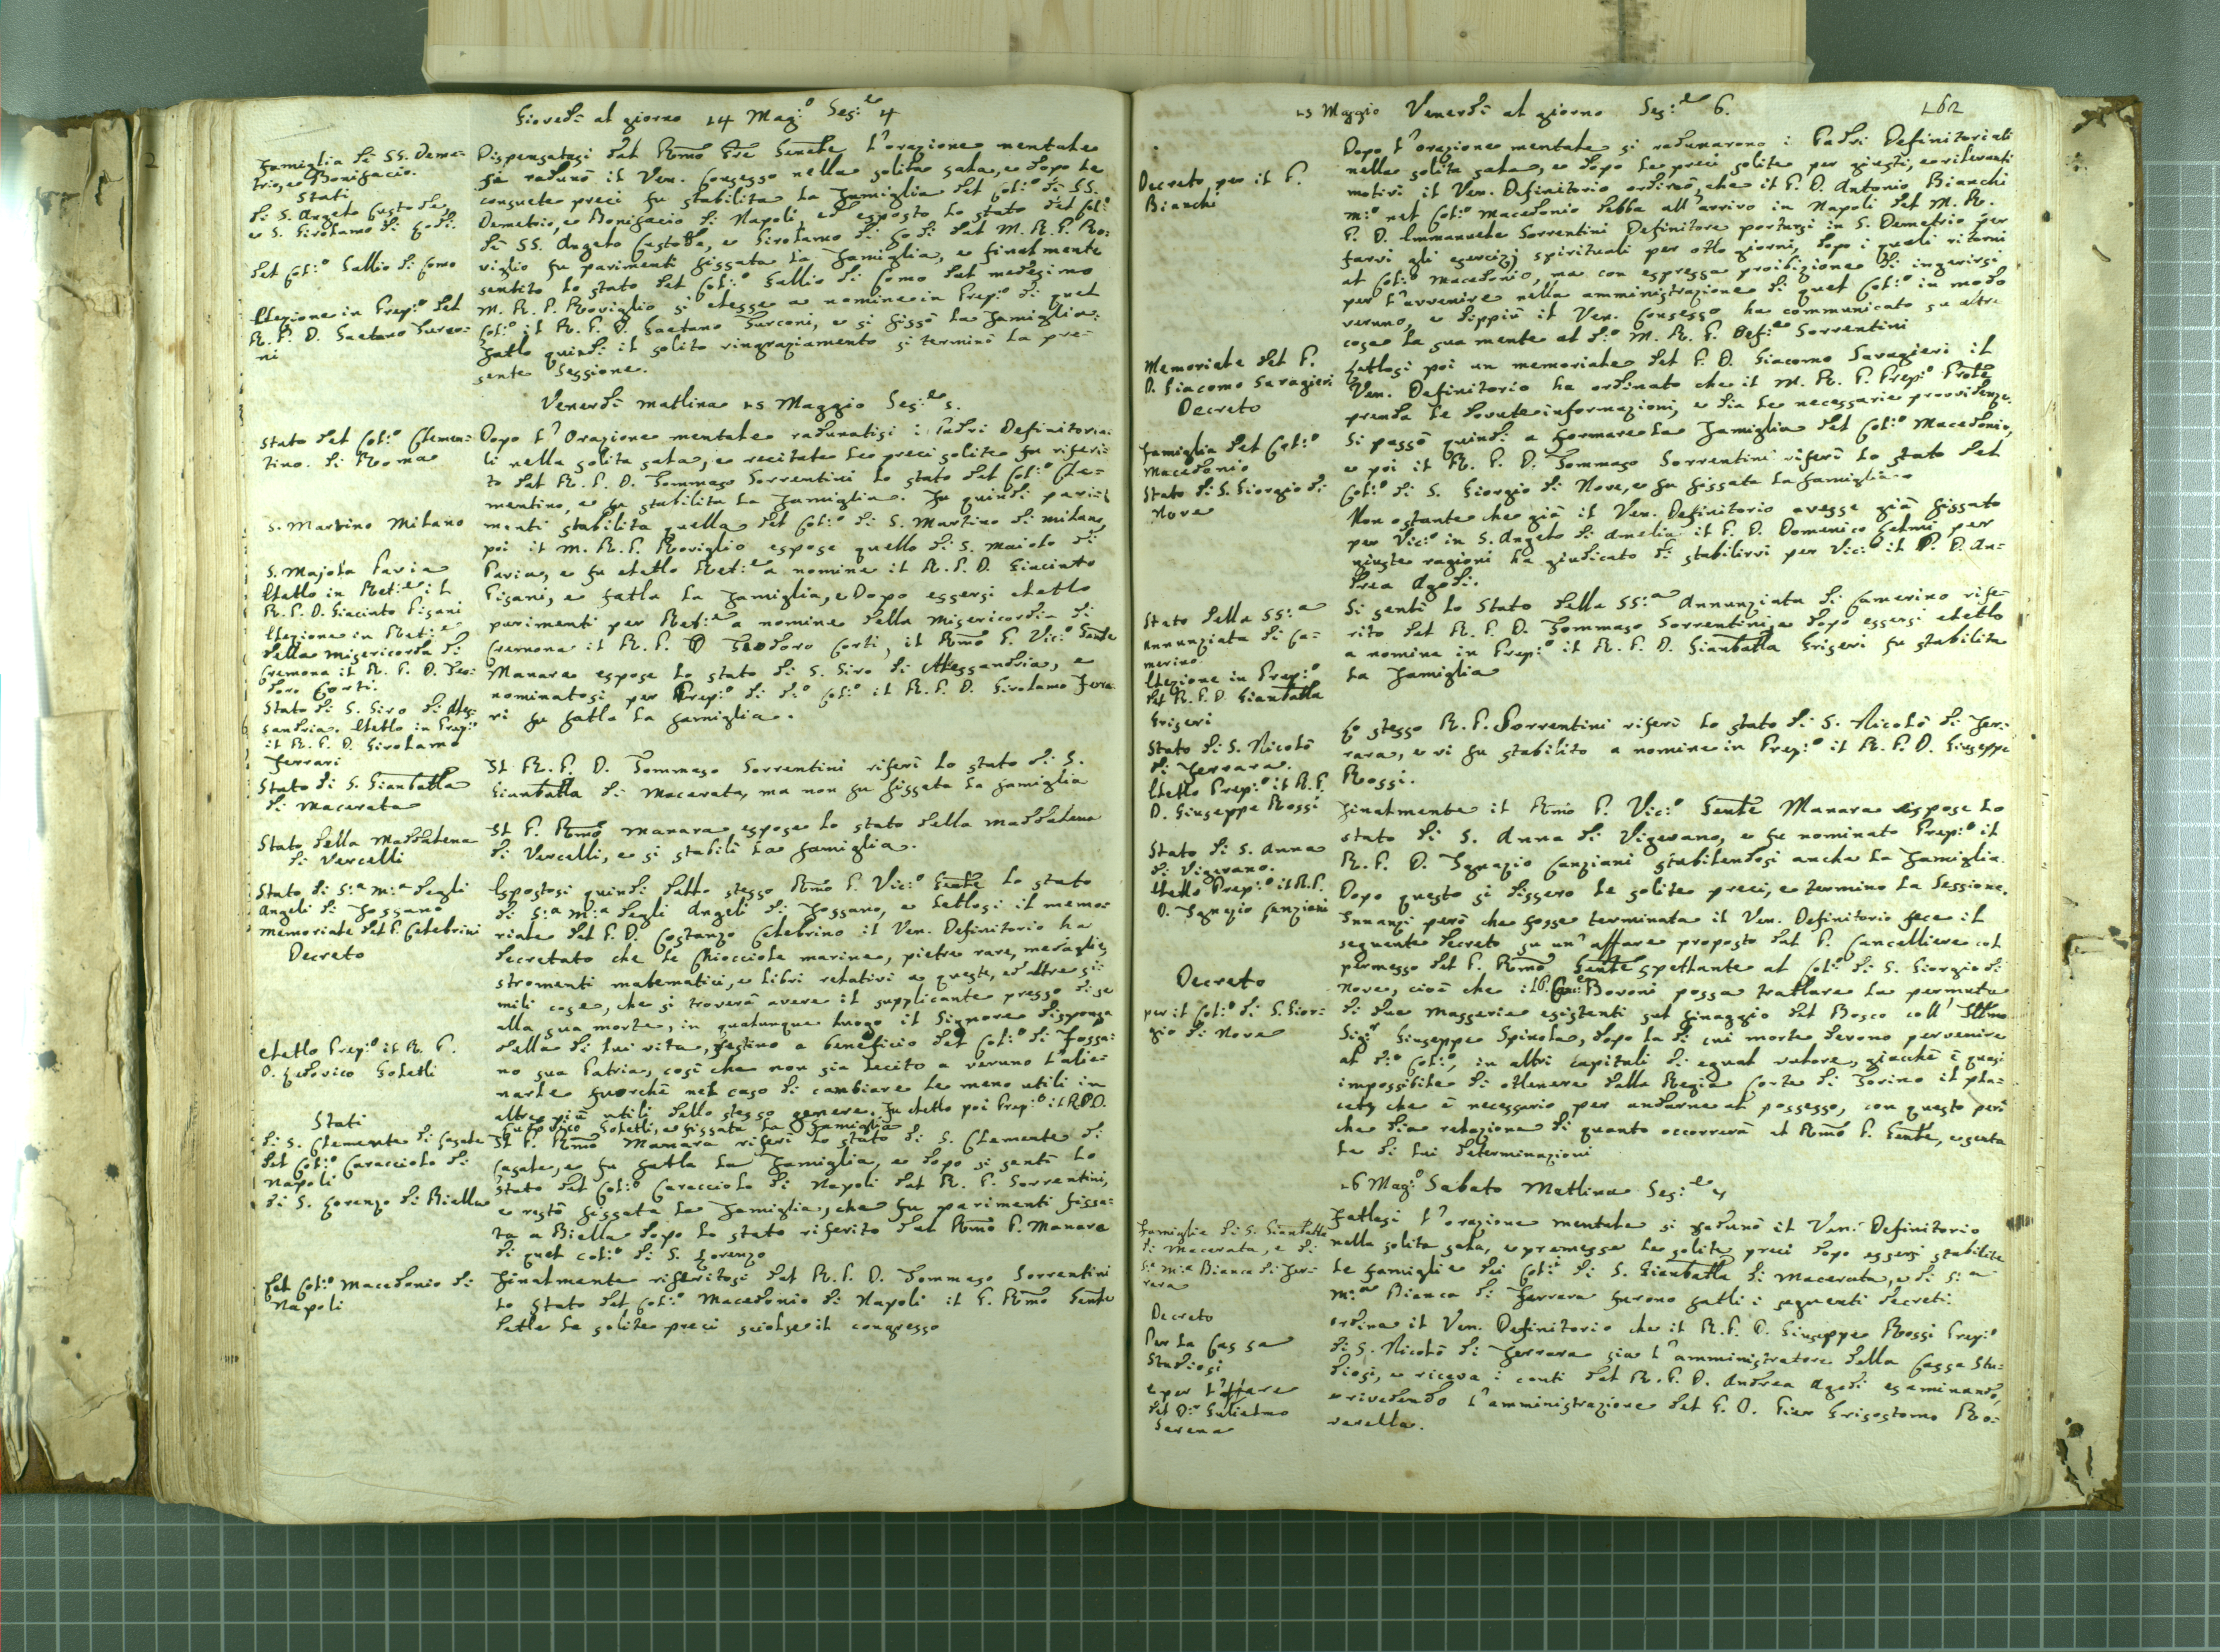 Giovedì al giorno 14 Mag:o Ses:e 4
Famiglia di SS. Deme-
trio, e Bonifacio.
Stati
di S. Angelo Custode,
e S. Girolamo di Lodi.
Del Col:o Gallio di Como
Elezione in Prep:o del
R. P. D. Gaetano Turco-
ni
Dispensatasi dal Rmo Pre Genele l'orazione mentale
si radunò il Ven. Consesso nella solita sala, e dopo le
consuete preci fu stabilita la Famiglia del Col:o di SS.
Demetrio, e Bonifacio di Napoli, ed esposto lo stato del Col:o
di SS. Angelo Custode, e Girolamo di Lodi dal M. R. P. Ro:
viglio fu parimenti fissata la Famiglia, e finalmente
sentito lo stato del Col:o Gallio di Como dal medesimo
M. R. P. Roviglio si elesse a nomine in Prep:o di quel
Col:o il R. P. D. Gaetano Turconi, e si fissò la Famiglia:
fatto quindi il solito ringraziamento si terminò la pre-
sente Sessione.
Venerdì mattina 15 Maggio Ses:e 5.
Stato del Col:o Clemen:
tino di Roma
S. Martino Milano
S. Majolo Pavia
Eletto in Ret:e il
R. P. D. Giacinto Pisani
Elezione in Ret:e
della Misericordia di
Cremona il R. P. D. Teo:
doro Corti.
Stato di S. Siro di Ales:
sandria. Eletto in Prep:o
il R. P. D. Girolamo
Ferrari
Stato di S. Gianbatta
di Macerata
Stato della Maddalena
di Vercelli
Stato di S:a M:a degli
Angeli di Fossano
memoriale del P. Celebrini
Decreto
eletto Prep:o il R. P.
D. Ludovico Goletti
Stati
di S. Clemente di Casale
del Col:o Caracciolo di
Napoli
di S. Lorenzo di Biella
Del Col:o Macedonio di
Napoli
Dopo l'Orazione mentale radunatisi i Padri Definitoria:
li nella solita sala, e recitate le preci solite fu riferi:
to dal R. P. D. Tommaso Sorrentini lo stato del Col:o Cle=
mentino, e fu stabilita la Famiglia. Fu quindi pari:
menti stabilita quella del Col:o di S. Martino di Milano,
poi il M. R. P. Roviglio espose quello di S. Maiolo di
Pavia, e fu eletto Ret:e a nomine il R. P. D. Giacinto
Pisani, e fatta la Famiglia, e Dopo essersi eletto
parimenti per Ret:e a nomine della Misericordia di
Cremona il R. P. D Teodoro Corti, il Rmo P. Vic:o Genle
Manara espose lo stato di S. Siro di Alessandria, e
nominatosi per Prep:o di d:o Col:o il R. P. D. Girolamo Ferra
ri fu fatta la famiglia.
Il R. P. D. Tommaso Sorrentini riferì lo stato di S.
Gianbatta di Macerata, ma non fu fissata la famiglia
Il P. Rmo Manara espose lo stato della Maddalena
di Vercelli, e si stabilì la famiglia.
Espostosi quindi dallo stesso Rmo P. Vic:o Genle lo stato
di S:a M:a degli Angeli di Fossano, e lettosi il memo:
riale del P. D. Costanzo Celebrino il Ven. Definitorio ha
decretato che le Chiocciole marine, pietre rare, medaglie,
stromenti matematici, e libri relativi a queste, ed altre si:
mili cose, che si troverà avere il supplicante presso di se
alla sua morte, in qualunque luogo il Signore disponga
della di lui vita, destino a beneficio del Col:o di Fossa:
no sua Patria, così che non sia lecito a veruno l'alie:
narle fuorchè nel caso di cambiare le meno utili in
altre più utili dello stesso genere. Fu eletto poi Prep:o il R.P.D.
Ludovico Goletti, e fissata la Famiglia
Il P. Rmo Manara riferì lo stato di S. Clemente di
Casale, e fu fatta la Famiglia, e dopo si sentì lo
stato del Col:o Caracciolo di Napoli dal R. P. Sorrentini,
e restò fissata la Famiglia, che fu parimenti fissa:
ta a Biella dopo lo stato riferito dal Rmo P. Manara
di quel col:o di S. Lorenzo
Finalmente riferitosi dal R. P. D. Tommaso Sorrentini
lo stato del Col:o Macedonio di Napoli il P. Rmo Genle
dette le solite preci sciolse il congresso
15 Maggio Venerdì al giorno Ses:e 6.
162
Decreto per il P.
Bianchi
Memoriale del P.
D. Giacomo Savagieri
Decreto
Famiglia del Col:o
Macedonio
Stato di S. Giorgio di
Nove
Stato della SS:a
Annunziata di Ca=
merino
Elezione in Prep:o
del R. P. D. Gianbatta
Griseri
Stato di S. Nicolò
di Ferrara.
Eletto Prep:o il R. P.
D. Giuseppe Rossi
Stato di S. Anna
di Vigevano.
Eletto Prep:o il R. P.
D. Ignazio Canziani
Decreto
per il Col:o di S. Gior:
gio di Nove
Dopo l'orazione mentale si radunarono i Padri Definitoriali
nella solita sala, e dopo le preci solite per giusti, e rilevanti
motivi il Ven. Definitorio ordinò, che il P. D. Antonio Bianchi
m:o nel Col:o Macedonio debba all'arrivo in Napoli del M. R.
P. D. Emmanuele Sorrentini Definitore portarsi in S. Demetrio per
farvi gli esercizj spirituali per otto giorni, dopo i quali ritorni
al Col:o Macedonio, ma con espressa proibizione di ingerirsi
per l'avvenire nella amministrazione di quel Col:o in modo
veruno, e dippiù il Ven. Consesso ha communicato su altre
cose la sua mente al d:o M. R. P. Def:e Sorrentini
Lettosi poi un memoriale del P. D. Giacomo Savagieri il
Ven. Definitorio ha ordinato che il M. R. P. Prep:o Prole
prenda le dovute informazioni, e dia le necessarie provvidenze.
Si passò quindi a formare la Famiglia del Col:o Macedonio,
e poi il R. P. D. Tommaso Sorrentini riferì lo stato del
Col:o di S. Giorgio di Nove, e fu fissata la famiglia.
Non ostante che già il Ven. Definitorio avesse già fissato
per Vic:o in S. Angelo di Amelia il P. D. Domenico Gelmi per
giuste ragioni ha giudicato di stabilirvi per Vic:o il P. D. An=
drea Agodi.
Si sentì lo Stato della SS:a Annunziata di Camerino rife=
rito dal R. P. D. Tommaso Sorrentini, e dopo essersi eletto
a nomina in Prep:o il R. P. D. Gianbatta Griseri fu stabilita
la Famiglia
Lo stesso R. P. Sorrentini riferì lo stato di S. Nicolò di Fer:
rara, e vi fu stabilito a nomine in Prep:o il R. P. D. Giuseppe
Rossi.
Finalmente il Rmo P. Vic:o Genle Manara espose lo
stato di S. Anna di Vigevano, e fu nominato Prep:o il
R. P. D. Ignazio Canziani stabilendosi anche la Famiglia.
Dopo questo si dissero le solite preci, e terminò la Sessione.
Innanzi però che fosse terminata il Ven. Definitorio fece il
seguente decreto su un'affare proposto dal P. Cancelliere col
permesso del P. Rmo Genle spettante al Col:o di S. Giorgio di
Nove, cioè che il P. Bovoni possa trattare la permuta
di due masserie esistenti sul finaggio del Bosco coll'Illmo
Sig:r Giuseppe Spinola, dopo la di cui morte devono pervenire
al d:o Col:o, in altri capitali di egual valore, giacchè è quasi
impossibile di ottenere dalla Regia Corte di Torino il pla=
cets che è necessario per andarne al possesso, con questo però
che dia relazione di quanto occorrerà al Rmo P. Genle, e senta
le di lui determinazioni
16 Mag:o Sabato Mattina Ses:e 7
Famiglie di S. Gianbatta
di Macerata, e di
S:a M:a Bianca di Fer:
rara
Decreto
Per la Cassa
Studiosi
e per l'affare
del D:r Gulielmo
Serena
Fattasi l'orazione mentale si radunò il Ven: Definitorio
nella solita sala, e premesse le solite preci dopo essersi stabilite
le famiglie dei Col:i di S. Gianbatta di Macerata, e di S:a
M:a Bianca di Ferrara furono fatti i seguenti decreti.
Ordina il Ven. Definitorio che il R. P. D. Giuseppe Rossi Prep:o
di S. Nicolò di Ferrara sia l'amministratore della Cassa Stu:
diosi, e riceva i conti dal R. P. D. Andrea Agodi esaminando,
e rivedendo l'amministrazione del P. D. Pier Grisostomo Ro:
varella.